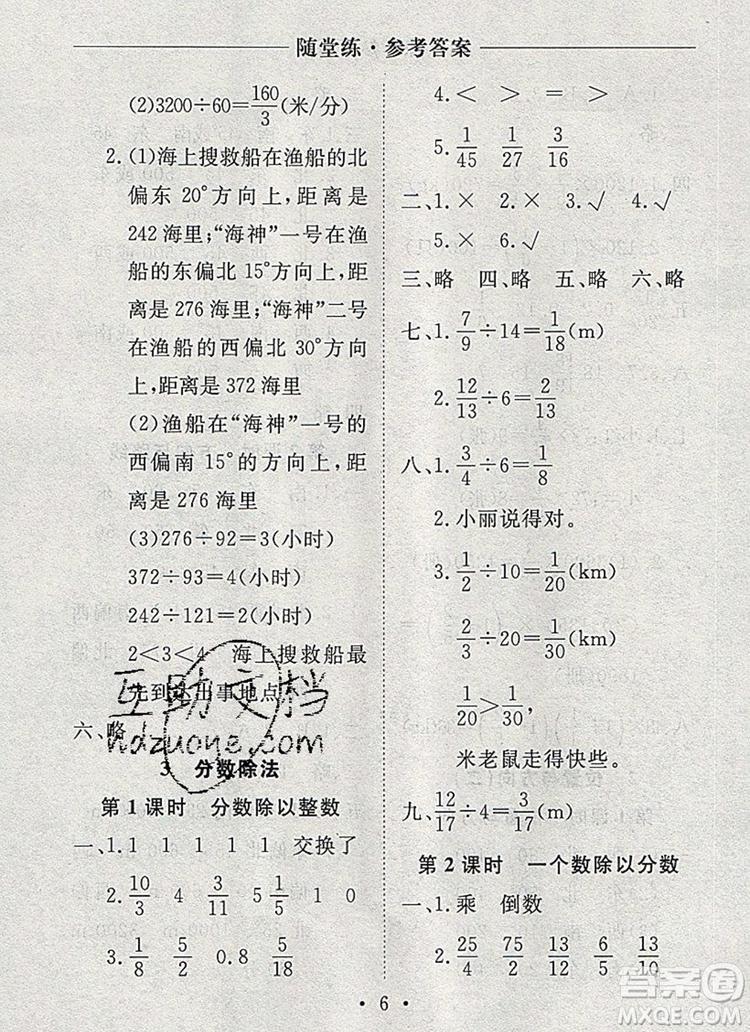 随堂练·参考答案
(2)3200÷60=160/3(米/分)
2.(1)海上搜救船在渔船的北
偏东 20°方向上,距离是
242 海里;“海神”一号在渔
船的东偏北 15°方向上,距
离是 276 海里;“海神”二号
在渔船的西偏北 30°方向
上,距离是 372 海里
(2)渔船在“海神”一号的
西偏南 15°的方向上,距离
是 276 海里
(3)276÷92=3(小时)
372÷93=4(小时)
242÷121=2(小时)
2<3<4 海上搜救船最
先到达出事地点
六、略
3 分数除法
第 1 课时 分数除以整数
一、1.1 1 1 1 交换了
2.10/3 4 3/11 5 1 0
3.1/8 5/2 0.8 5/18
4.< > = >
5.1/45 1/27 3/16
二、1.× 2.× 3.√ 4.√
5.× 6.√
三、略 四、略 五、略 六、略
七、1.7/9÷14=1/18(m)
2.12/13÷6=2/13
八、1.3/4÷6=1/8
2.小丽说得对。
3.1/2÷10=1/20(km)
2/3÷20=1/30(km)
1/20>1/30,
米老鼠走得快些。
九、12/17÷4=3/17(m)
第 2 课时 一个数除以分数
一、1.乘 倒数
2.25/4 75/2 13/12 6/5 13/10
• 6 •
互助文档
hdzuowe.com
答案圈
MXQE.COM